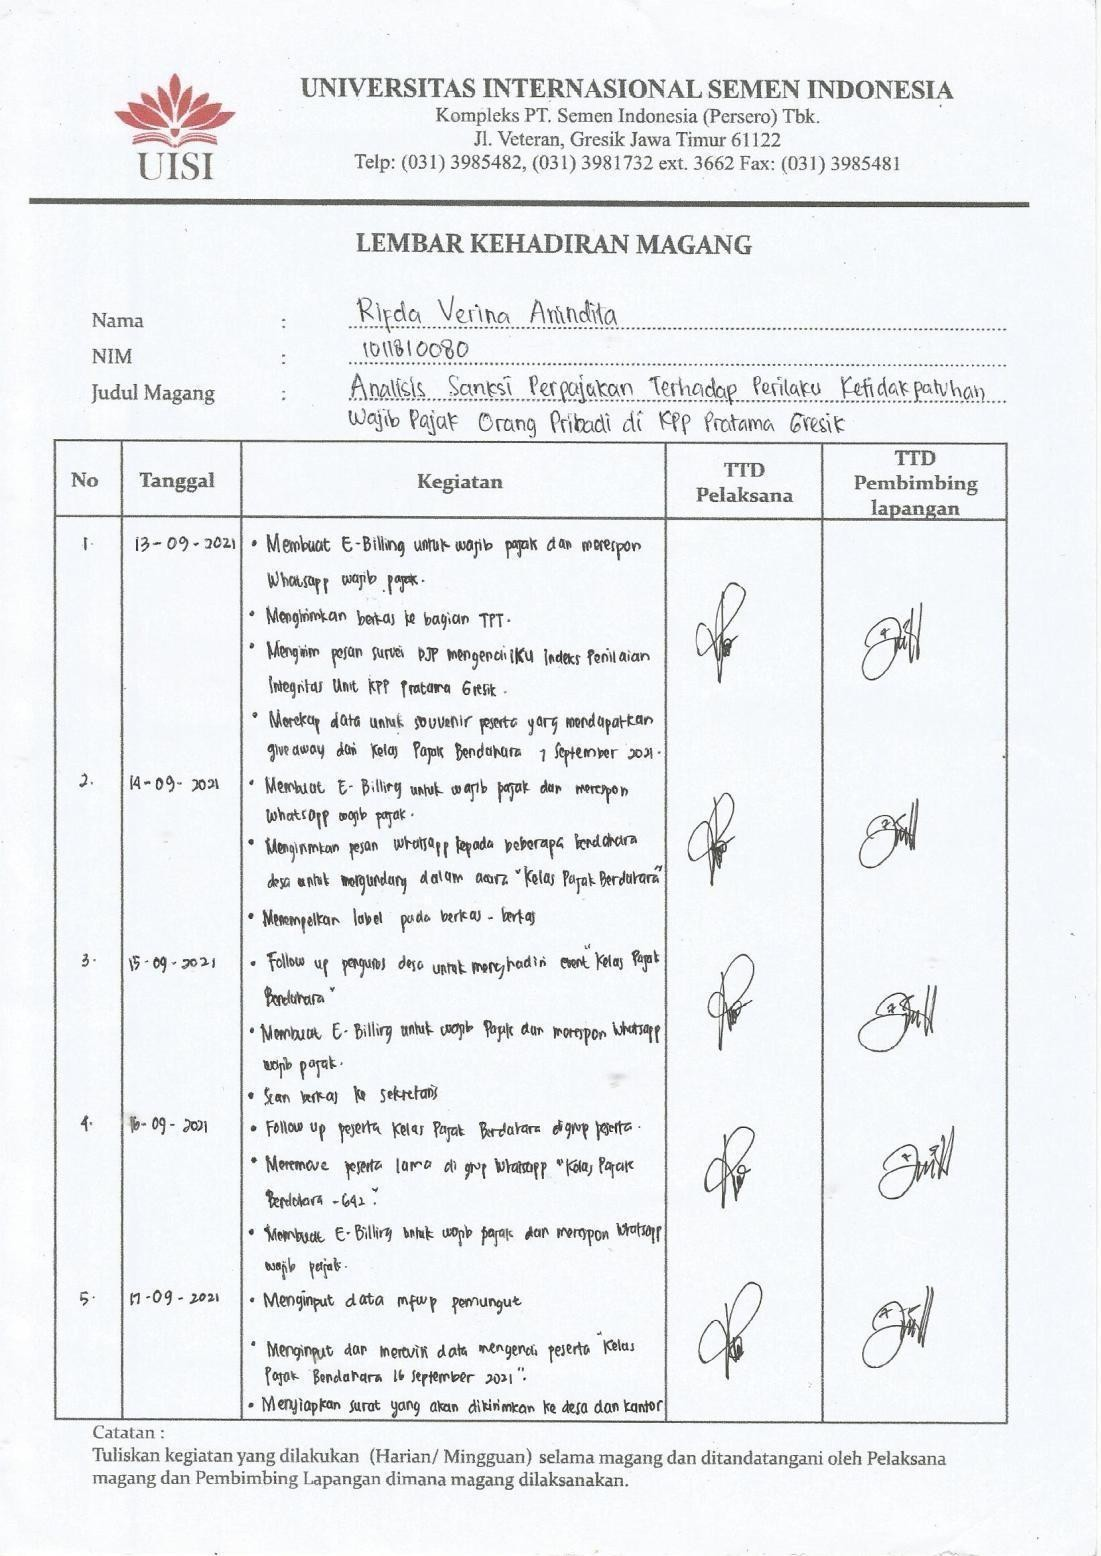 UNIVERSITAS INTERNASIONAL SEMEN INDONESIA
Kompleks PT. Semen Indonesia (Persero) Tbk.
Jl. Veteran, Gresik Jawa Timur 61122
Telp: (031) 3985482, (031) 3981732 ext. 3662 Fax: (031) 3985481
UISI
LEMBAR KEHADIRAN MAGANG
Nama : Rifda Verina Anindita
NIM : 1011810080
Judul Magang : Analisis Sanksi Perpajakan Terhadap Perilaku Ketidakpatuhan
Wajib Pajak Orang Pribadi di KPP Pratama Gresik
No Tanggal Kegiatan TTD Pelaksana TTD Pembimbing lapangan
1. 13-09-2021 • Membuat E-Billing untuk wajib pajak dan merespon
Whatsapp wajib pajak.
• Mengirimkan berkas ke bagian TPT.
• Mengirim pesan survei DJP mengenai IKU Indeks Penilaian
Integritas Unit KPP Pratama Gresik.
• Merekap data untuk souvenir peserta yang mendapatkan
giveaway dari Kelas Pajak Bendahara 7 September 2021.
2. 14-09-2021 • Membuat E-Billing untuk wajib pajak dan merespon
Whatsapp wajib pajak.
• Mengirimkan pesan Whatsapp kepada beberapa bendahara
desa untuk mengundang dalam acara "Kelas Pajak Bendahara"
• Menempelkan label pada berkas-berkas
3. 15-09-2021 • Follow up pengurus desa untuk menghadiri event "Kelas Pajak
Bendahara"
• Membuat E-Billing untuk wajib Pajak dan merespon Whatsapp
wajib pajak.
• Scan berkas ke sekretaris
4. 16-09-2021 • Follow up peserta Kelas Pajak Bendahara di grup peserta.
• Meremove peserta lama di grup Whatsapp "Kelas Pajak
Bendahara -642".
• Membuat E-Billing untuk wajib pajak dan merespon Whatsapp
wajib pajak.
5. 17-09-2021 • Menginput data mfwp pemungut
• Menginput dan data mengenai peserta "Kelas
Pajak Bendahara 16 September 2021".
• Menyiapkan surat yang akan dikirimkan ke desa dan kantor
Catatan :
Tuliskan kegiatan yang dilakukan (Harian/ Mingguan) selama magang dan ditandatangani oleh Pelaksana
magang dan Pembimbing Lapangan dimana magang dilaksanakan.